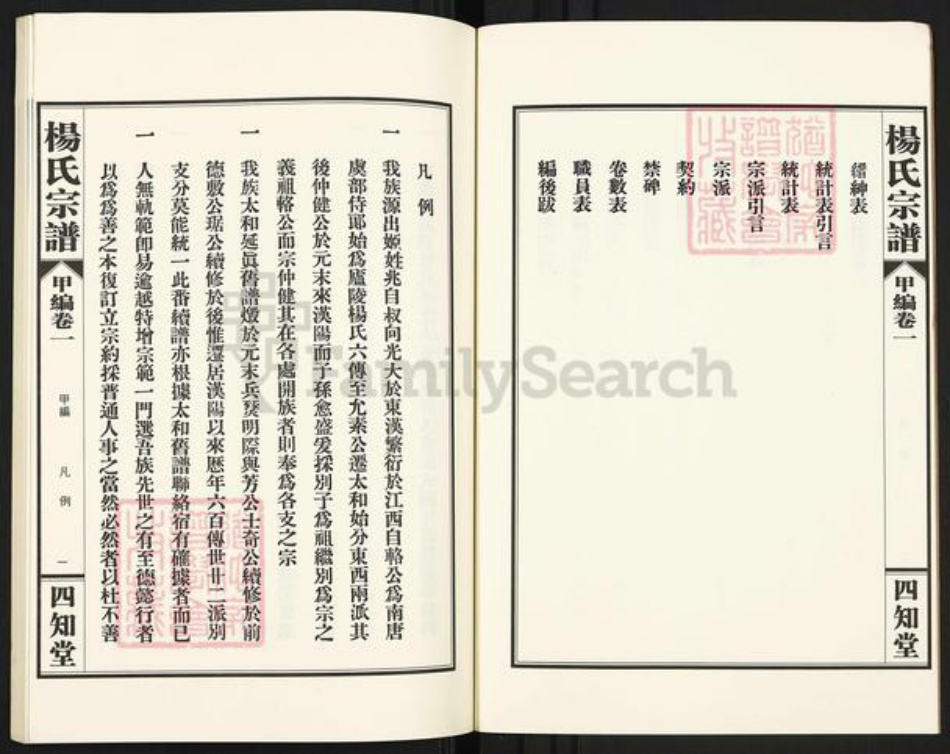 楊氏宗譜
甲編卷一
四知堂
縉紳表
統計表引言
統計表
宗派引言
宗派
契約
禁碑
卷數表
職員表
編後跋
凡例
一 我族源出姬姓兆自叔向光大於東漢繁衍於江西自輅公為南唐
虞部侍郎始為廬陵楊氏六傳至允素公遷太和始分東西兩派其
後仲健公於元末來漢陽而子孫愈盛爰採別子為祖繼別為宗之
義祖輅公而宗仲健其在各處開族者則奉為各支之宗
一 我族太和延眞舊譜燬於元末兵燹明際與芳公士奇公續修於前
德敷公琚公續修於後惟遷居漢陽以來歷年六百傳世廿二派別
支分莫能統一此番續譜亦根據太和舊譜聯絡宿有確據者而已
一 人無軌範卽易逾越特增宗範一門選吾族先世之有至德懿行者
以爲爲善之本復訂立宗約採普通人事之當然必然者以杜不善
楊氏宗譜
甲編卷一
甲編
凡例
一
四知堂
FamilySearch